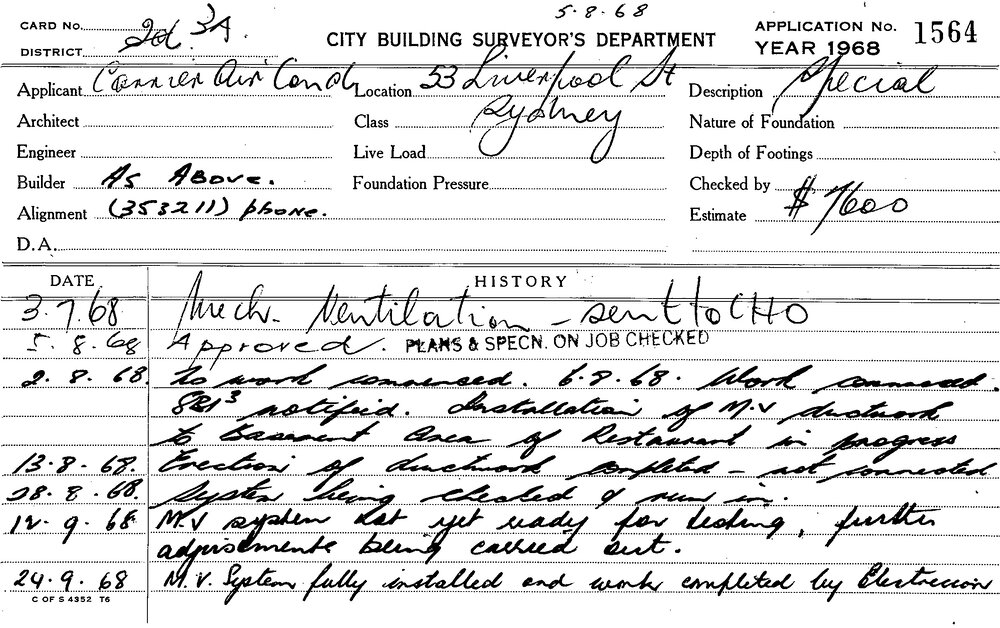 5.8.68
CARD No. 2d. 3A.
DISTRICT
CITY BUILDING SURVEYOR'S DEPARTMENT
APPLICATION No. 1564
YEAR 1968
Applicant Carrier Air Cond Location 53 Liverpool St Description Special
Architect Class Sydney Nature of Foundation
Engineer Live Load Depth of Footings
Builder As Above. Foundation Pressure Checked by
Alignment (353211) phone. Estimate $7600
D.A.
DATE HISTORY
3.7.68 Mech. Ventilation - sent to CHO
5.8.68 Approved. PLANS & SPECN. ON JOB CHECKED
2.8.68. No work commenced. 6.8.68. Work commenced.
notified. Installation of M.V ductwork
to Basement Area of Restaurant in progress
13.8.68. Erection of ductwork completed - not connected
28.8.68. System being checked & run in.
12.9.68 M.V system not yet ready for testing, further
adjustments being carried out.
24.9.68 M.V. System fully installed and work completed by Electrician
C OF S 4352 T6